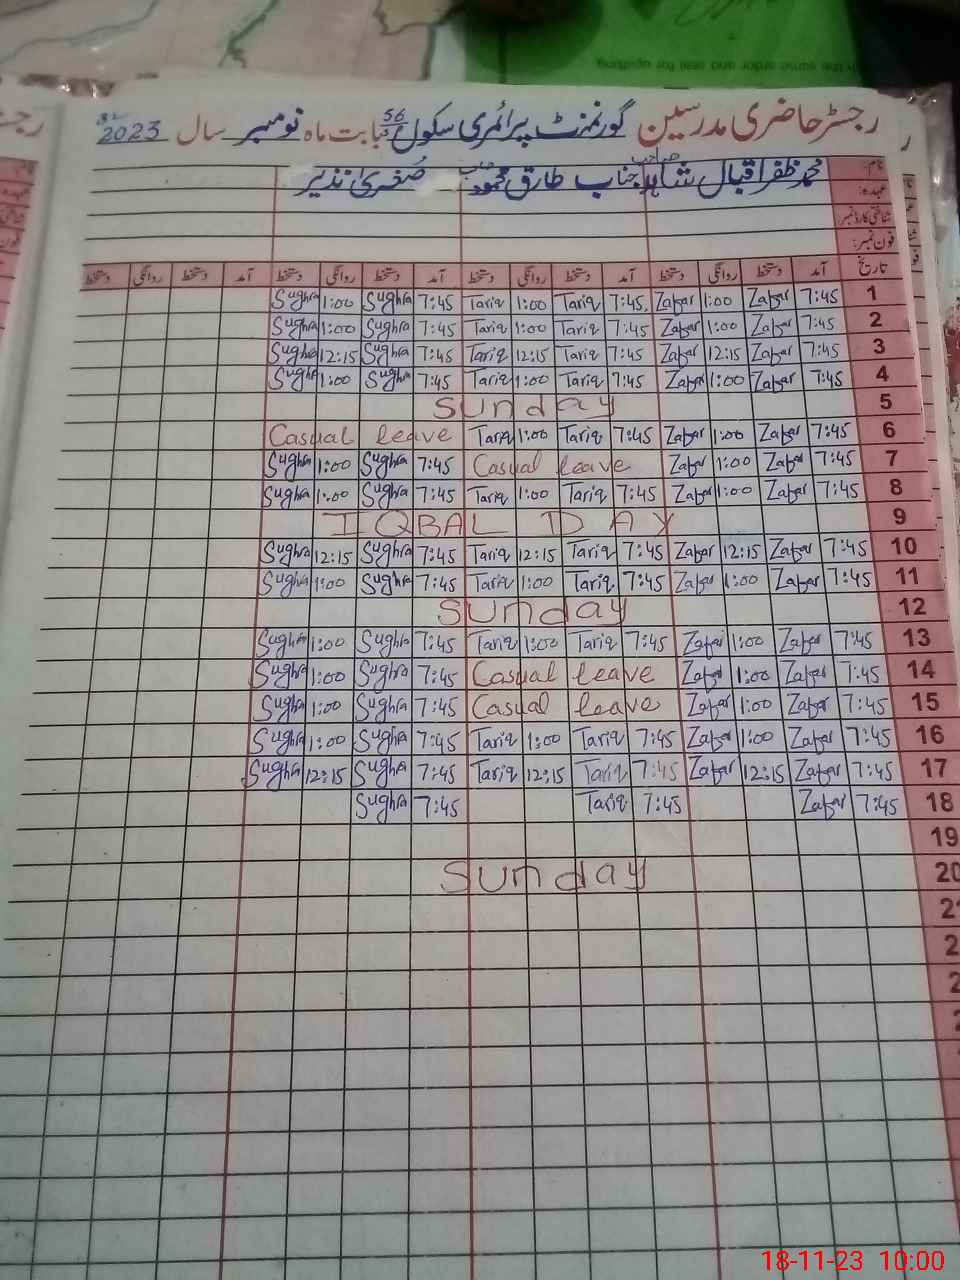 the same order and seal for
رجسٹر حاضری مدرسین گورنمنٹ پرائمری سکول 56 بابت ماہ نومبر سال 2023
نام: محمد ظفر اقبال شاہد صاحب جناب طارق محمود صاحب صغریٰ نذیر
عہدہ:
شناختی کارڈ نمبر:
فون نمبر:
تاریخ آمد دستخط روانگی دستخط آمد دستخط روانگی دستخط آمد دستخط روانگی دستخط آمد دستخط روانگی دستخط
1 7:45 Zafar 1:00 Zafar 7:45 Tariq 1:00 Tariq 7:45 Sughra 1:00 Sughra
2 7:45 Zafar 1:00 Zafar 7:45 Tariq 1:00 Tariq 7:45 Sughra 1:00 Sughra
3 7:45 Zafar 12:15 Zafar 7:45 Tariq 12:15 Tariq 7:45 Sughra 12:15 Sughra
4 7:45 Zafar 1:00 Zafar 7:45 Tariq 1:00 Tariq 7:45 Sughra 1:00 Sughra
5 Sunday
6 7:45 Zafar 1:00 Zafar 7:45 Tariq 1:00 Tariq Casual leave
7 7:45 Zafar 1:00 Zafar Casual leave 7:45 Sughra 1:00 Sughra
8 7:45 Zafar 1:00 Zafar 7:45 Tariq 1:00 Tariq 7:45 Sughra 1:00 Sughra
9 IQBAL DAY
10 7:45 Zafar 12:15 Zafar 7:45 Tariq 12:15 Tariq 7:45 Sughra 12:15 Sughra
11 7:45 Zafar 1:00 Zafar 7:45 Tariq 1:00 Tariq 7:45 Sughra 1:00 Sughra
12 Sunday
13 7:45 Zafar 1:00 Zafar 7:45 Tariq 1:00 Tariq 7:45 Sughra 1:00 Sughra
14 7:45 Zafar 1:00 Zafar Casual leave 7:45 Sughra 1:00 Sughra
15 7:45 Zafar 1:00 Zafar Casual leave 7:45 Sughra 1:00 Sughra
16 7:45 Zafar 1:00 Zafar 7:45 Tariq 1:00 Tariq 7:45 Sughra 1:00 Sughra
17 7:45 Zafar 12:15 Zafar 7:45 Tariq 12:15 Tariq 7:45 Sughra 12:15 Sughra
18 7:45 Zafar 7:45 Tariq 7:45 Sughra
19
20 Sunday
2
2
2
2
18-11-23 10:00